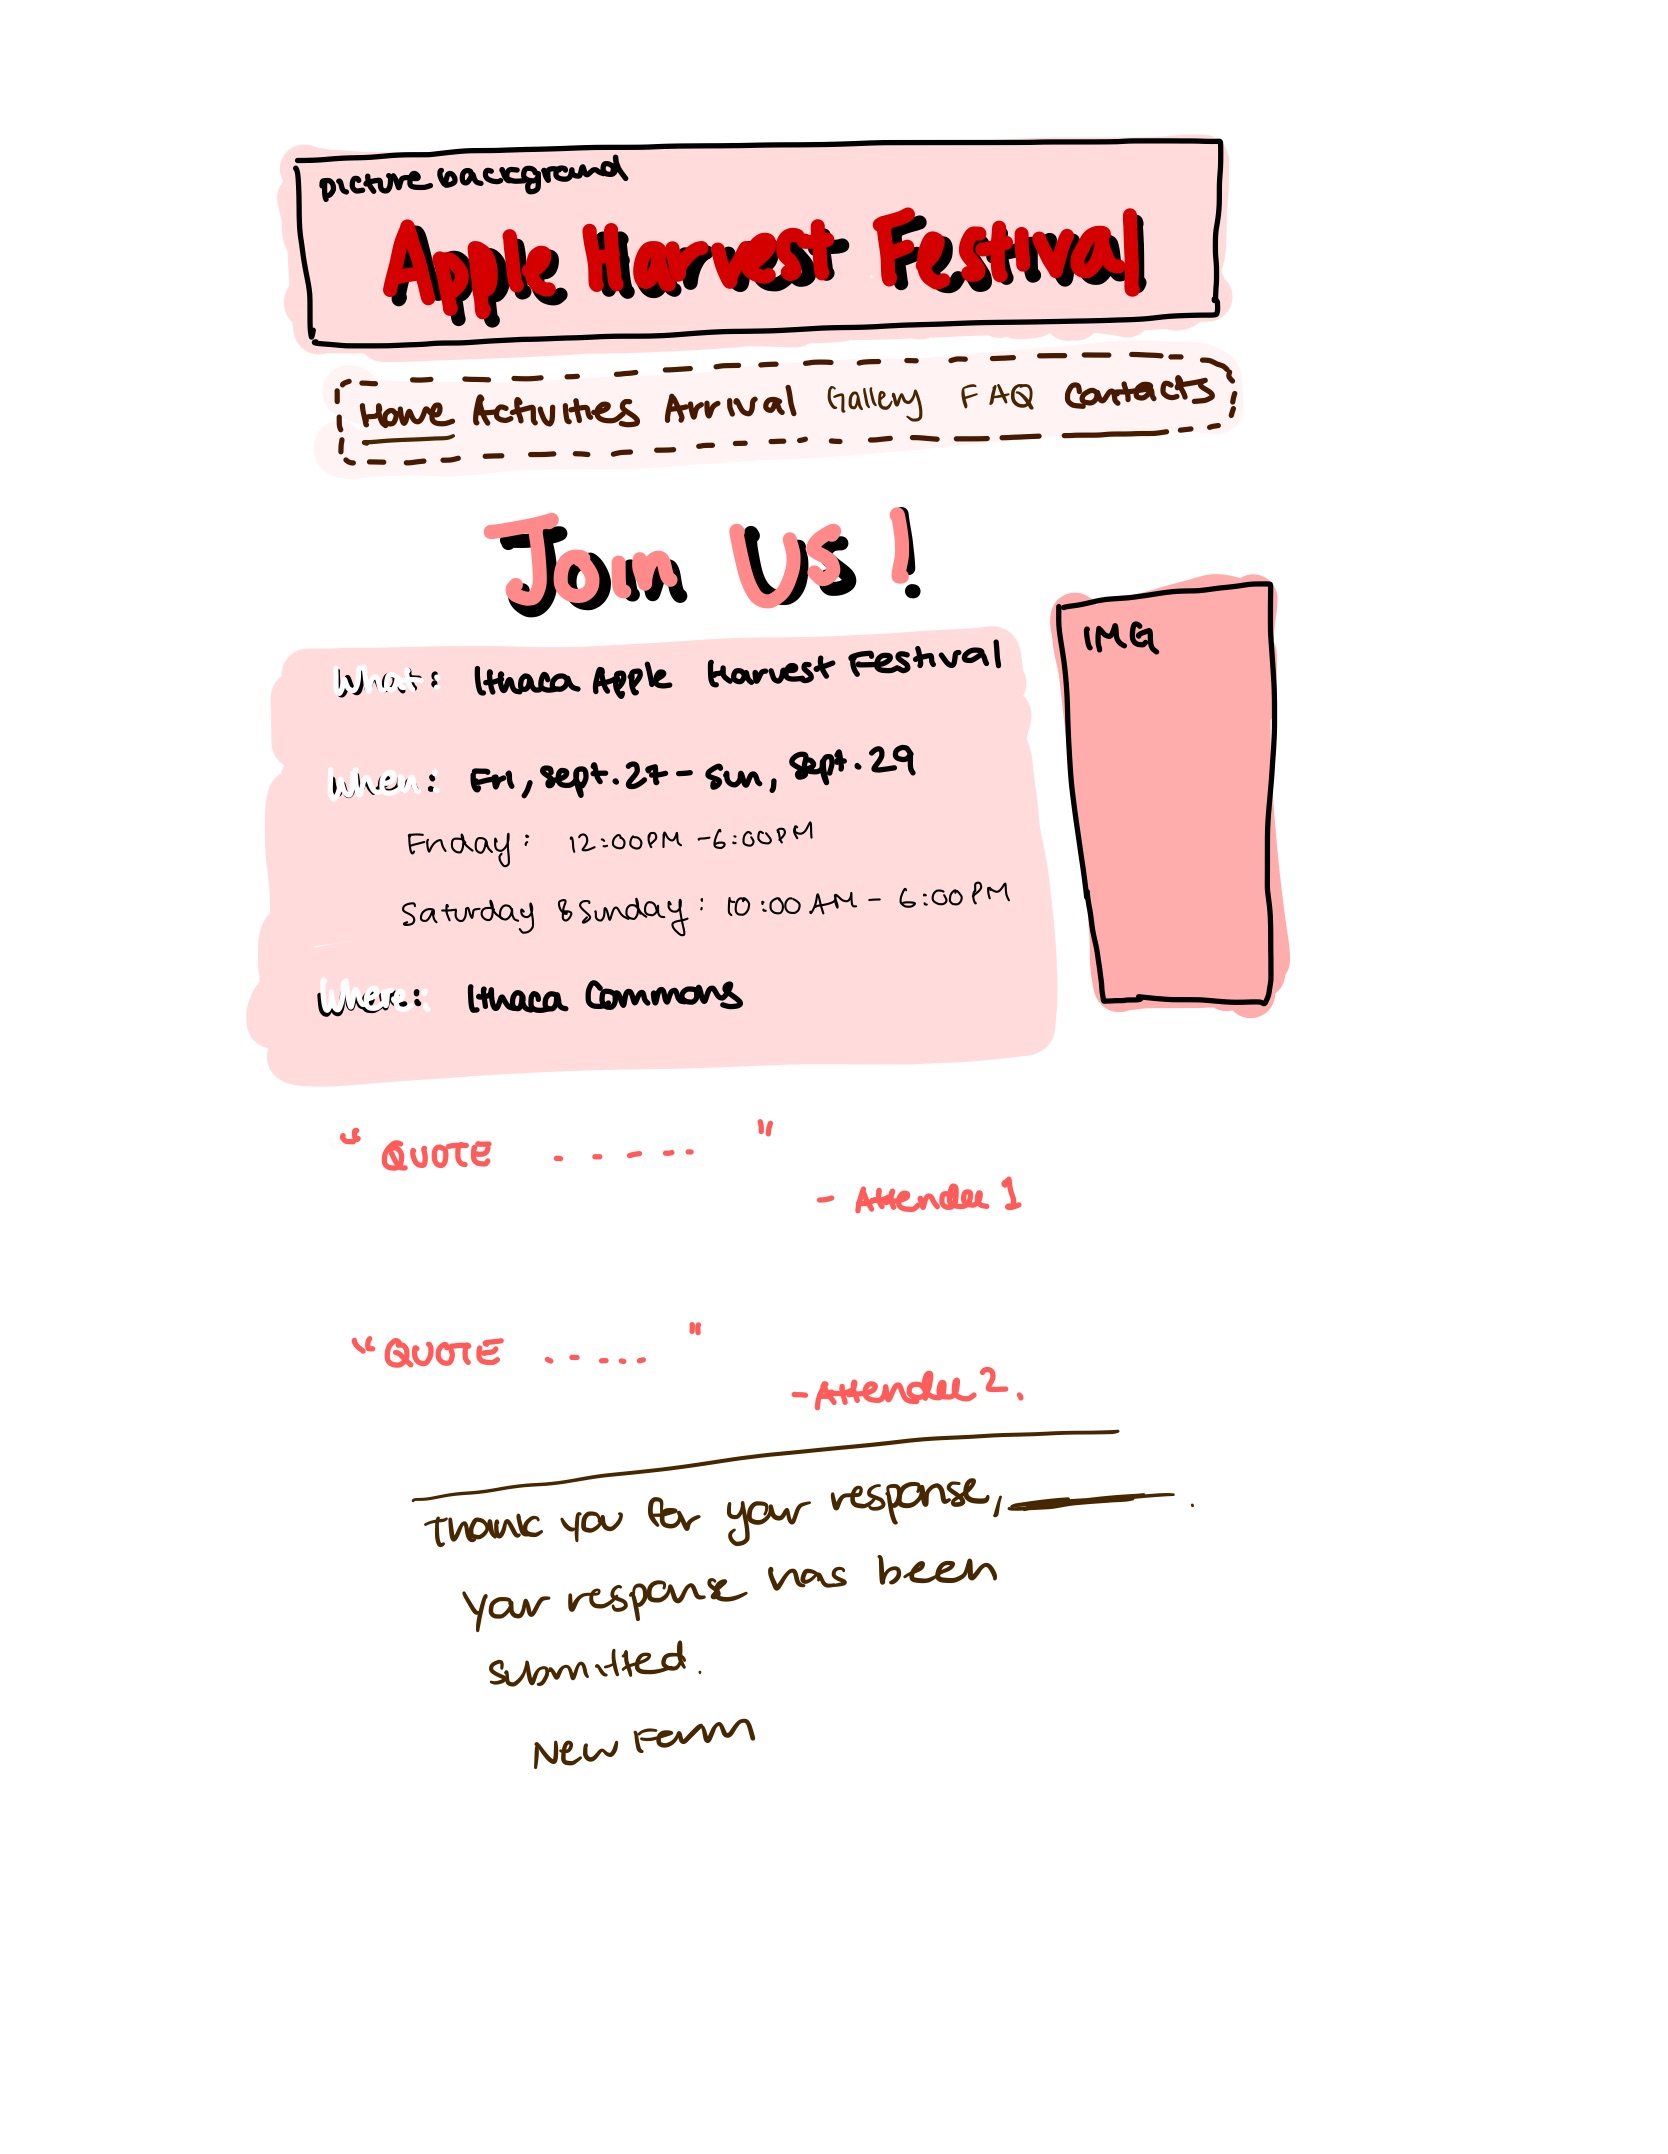 picture background
Apple Harvest Festival
Home Activities Arrival Gallery FAQ Contacts
Join Us!
IMG
What: Ithaca Apple Harvest Festival
When: Fri, Sept. 27 - Sun, Sept. 29
Friday: 12:00PM - 6:00PM
Saturday & Sunday: 10:00 AM - 6:00PM
Where: Ithaca Commons
"QUOTE ..... "
- Attendee 1
"QUOTE ..... "
- Attendee 2.
Thank you for your response, ______.
Your response has been
submitted.
New Form